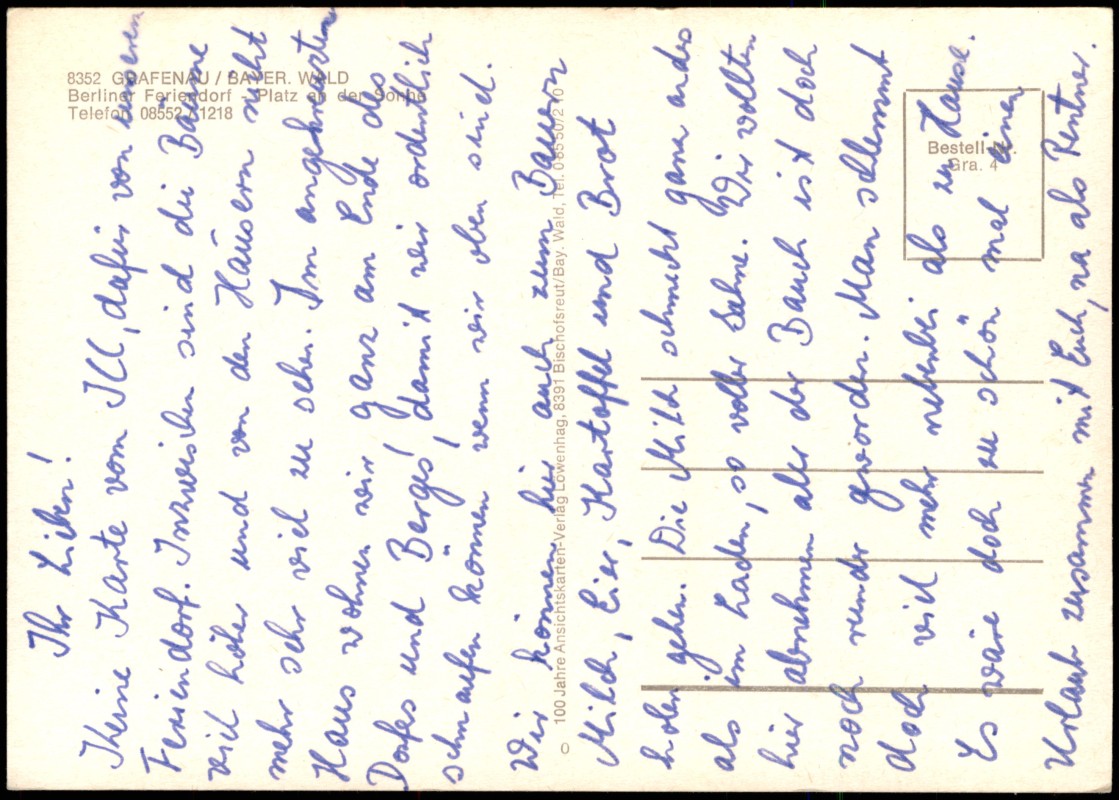 8352 GRAFENAU / BAYER. WALD
Berliner Feriendorf - Platz an der Sonne
Telefon 08552 / 1218
Bestell-Nr.
Gra. 4
© 100 Jahre Ansichtskarten-Verlag Löwenhag, 8391 Bischofsreut/Bay. Wald, Tel. 08550/210
Ihr Lieben!
Keine Karte vom ICC, dafür von unserem
Feriendorf. Inzwischen sind die Bäume
viel höher und von den Häusern nicht
mehr sehr viel zu sehen. Im angekreuzten
Haus wohnen wir ganz am Ende des
Dorfes und Berges, damit wir ordentlich
schnaufen können wenn wir oben sind.
Wir können hier auch zum Bauern
Milch, Eier, Kartoffel und Brot
holen gehen. Die Milch schmeckt ganz anders
als im Laden, so voller Sahne. Wir wollten
hier abnehmen aber der Bauch ist doch
noch runder geworden. Man schlemmt
doch viel mehr nebenbei als zu Hause.
Es wäre doch zu schön mal einen
Urlaub zusammen mit Euch, na als Rentner.